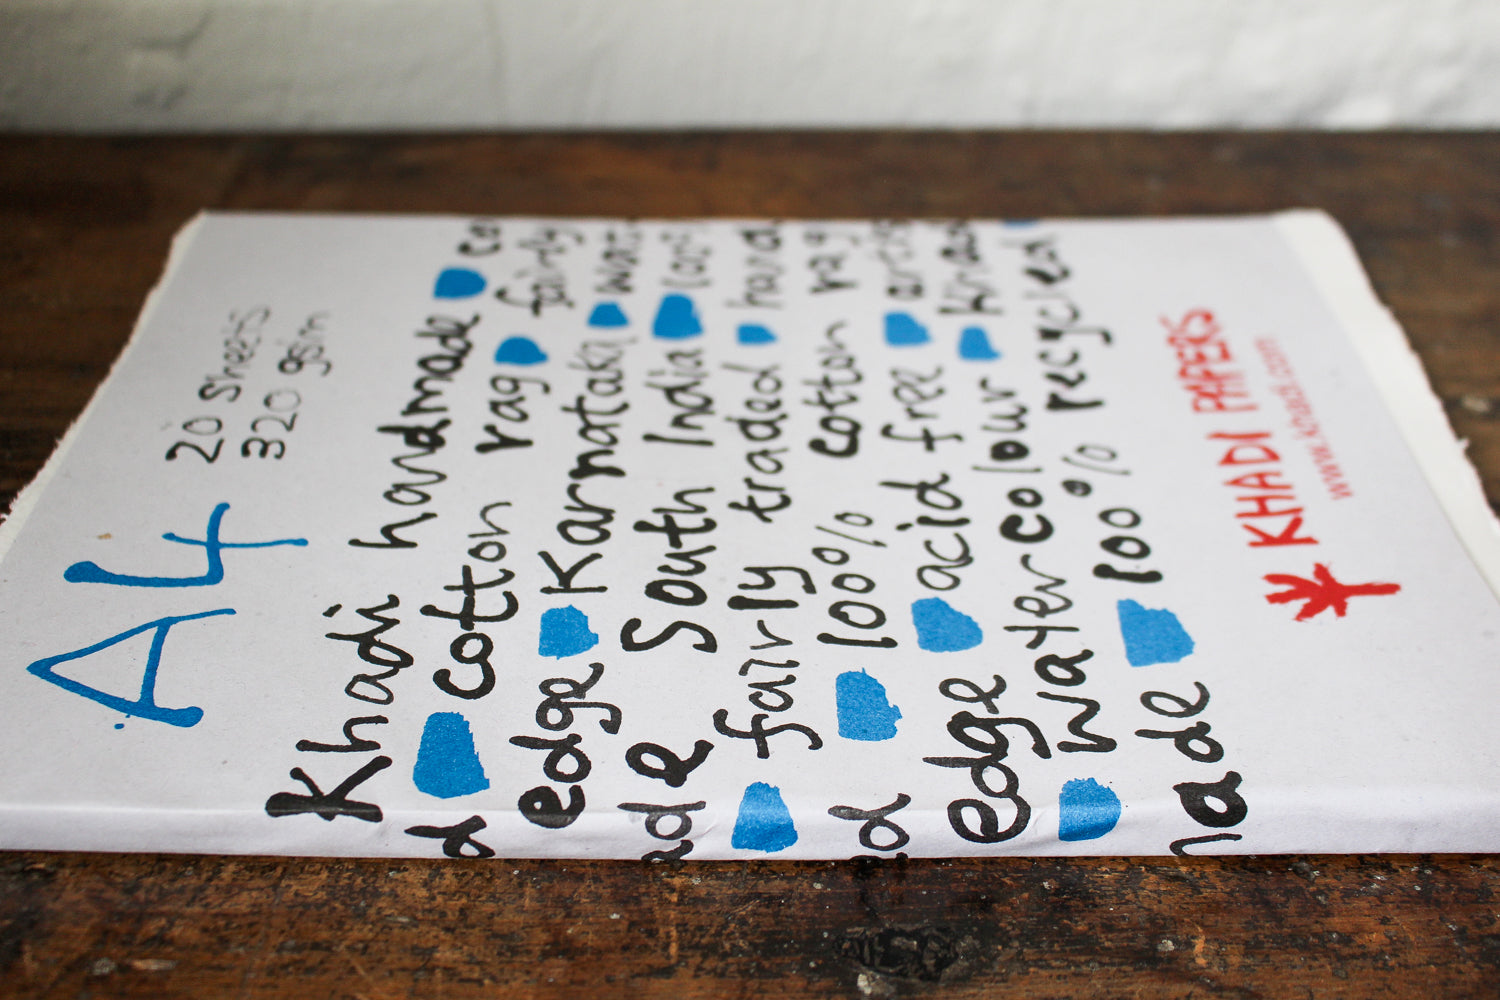 A4
20 sheets
320 gsm
Khadi handmade
cotton rag fairly
edge Karnataka
South India
fairly traded
100% cotton rag
edge acid free
watercolour
100% recycled
KHADI PAPERS
www.khadi.com